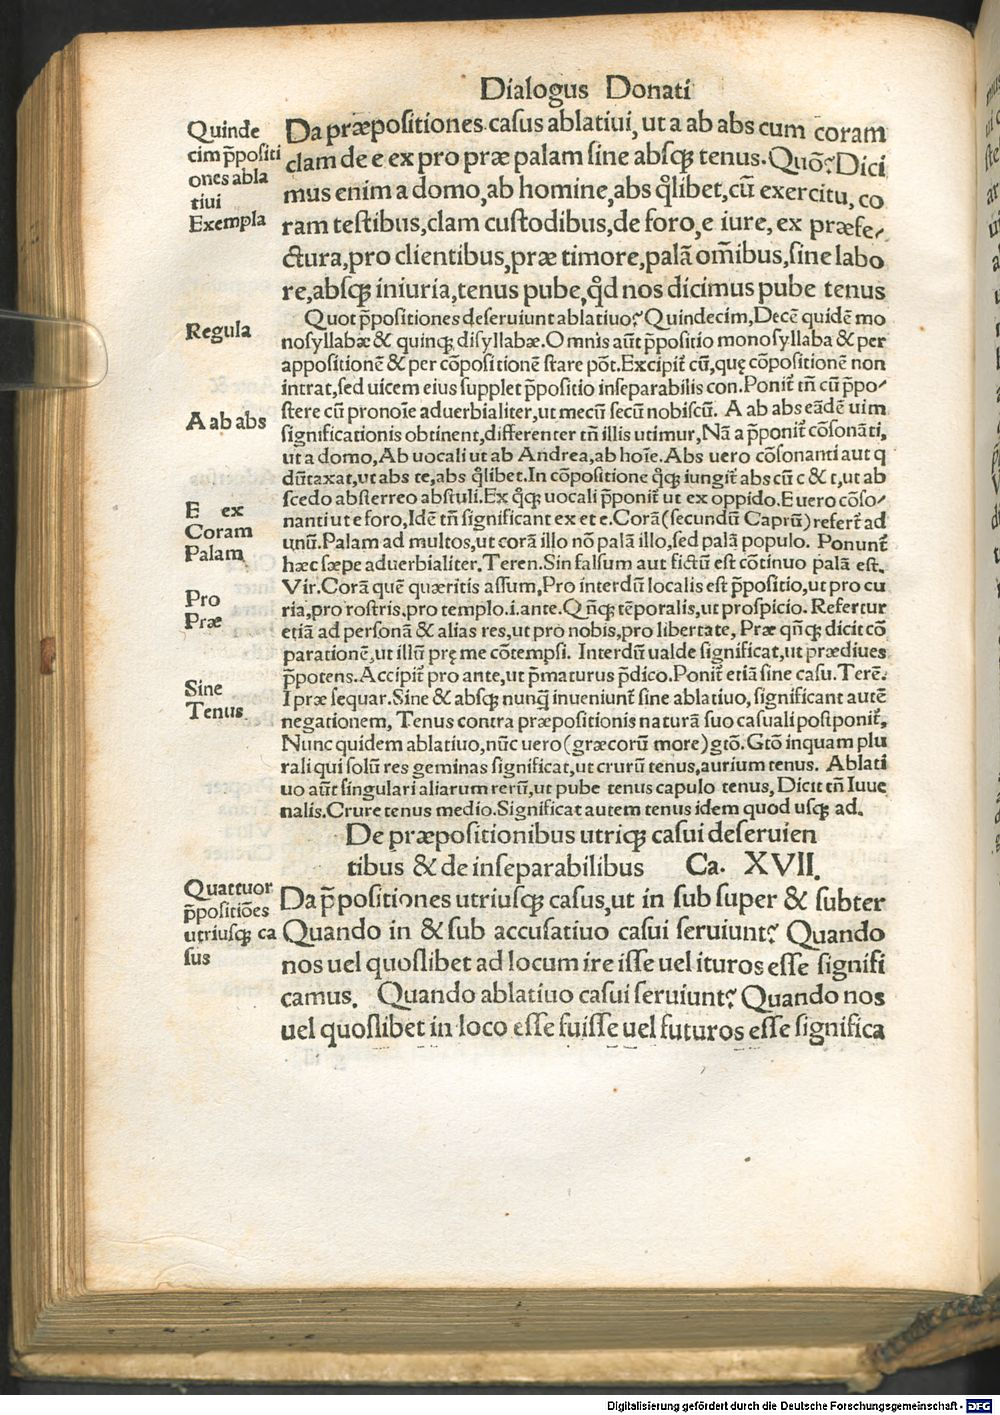 Dialogus Donati
Quinde
cim p̄positi
ones abla
tiui
Exempla
Da præpositiones casus ablatiui, ut a ab abs cum coram
clam de e ex pro præ palam sine absq; tenus. Quō? Dici
mus enim a domo, ab homine, abs q̊libet, cū exercitu, co
ram testibus, clam custodibus, de foro, e iure, ex præfe⸗
ctura, pro clientibus, præ timore, palā om̄ibus, sine labo
re, absq; iniuria, tenus pube, q̊d nos dicimus pube tenus
Regula
Quot p̄positiones deseruiunt ablatiuo? Quindecim, Decē quidē mo
nosyllabæ & quinq; disyllabæ. Omnis aūt p̄positio monosyllaba & per
appositionē & per cōpositionē stare pōt. Excipit̃ cū, quę cōpositionē non
intrat, sed uicem eius supplet p̄positio inseparabilis con. Ponit̃ tñ cū p̄po⸗
A ab abs
stere cū pronoīe aduerbialiter, ut mecū secū nobiscū. A ab abs eādē uim
significationis obtinent, differenter tñ illis utimur, Nā a p̄ponit̃ cōsonāti,
ut a domo, Ab uocali ut ab Andrea, ab hoīe. Abs uero cōsonanti aut q
dūtaxat, ut abs te, abs q̊libet. In cōpositione q̊q; iungit̃ abs cū c & t, ut ab
scedo absterreo abstuli. Ex q̊q; uocali p̄ponit̃ ut ex oppido. E uero cōso⸗
E ex
Coram
Palam
nanti ut e foro, Idē tñ significant ex et e. Corā (secundū Caprū) refert̃ ad
unū. Palam ad multos, ut corā illo nō palā illo, sed palā populo. Ponunt̃
hæc sæpe aduerbialiter. Teren. Sin falsum aut fictū est cōtinuo palā est.
Vir. Corā quē quæritis assum, Pro interdū localis est p̄positio, ut pro cu
Pro
Præ
ria, pro rostris, pro templo .i. ante. Qñq; tēporalis, ut prospicio. Refertur
etiā ad personā & alias res, ut pro nobis, pro libertate, Præ qñq; dicit cō
parationē, ut illū prę me cōtempsi. Interdū ualde significat, ut prædiues
p̄potens. Accipit̃ pro ante, ut p̄maturus p̄dico. Ponit̃ etiā sine casu. Terē.
Sine
Tenus
I præ sequar. Sine & absq; nunq̄ inueniunt̃ sine ablatiuo, significant autē
negationem, Tenus contra præpositionis naturā suo casuali postponit̃,
Nunc quidem ablatiuo, nūc uero (græcorū more) gtō. Gtō inquam plu
rali qui solū res geminas significat, ut crurū tenus, aurium tenus. Ablati
uo aūt singulari aliarum rerū, ut pube tenus capulo tenus, Dicit tñ Iuue
nalis. Crure tenus medio. Significat autem tenus idem quod usq; ad.
De præpositionibus utriq; casui deseruien
tibus & de inseparabilibus Ca. XVII.
Quattuor
p̄positiōes
utriusq; ca
sus
Da p̄positiones utriusq; casus, ut in sub super & subter
Quando in & sub accusatiuo casui seruiunt? Quando
nos uel quoslibet ad locum ire isse uel ituros esse signifi
camus. Quando ablatiuo casui seruiunt? Quando nos
uel quoslibet in loco esse fuisse uel futuros esse significa
Digitalisierung gefördert durch die Deutsche Forschungsgemeinschaft - DFG